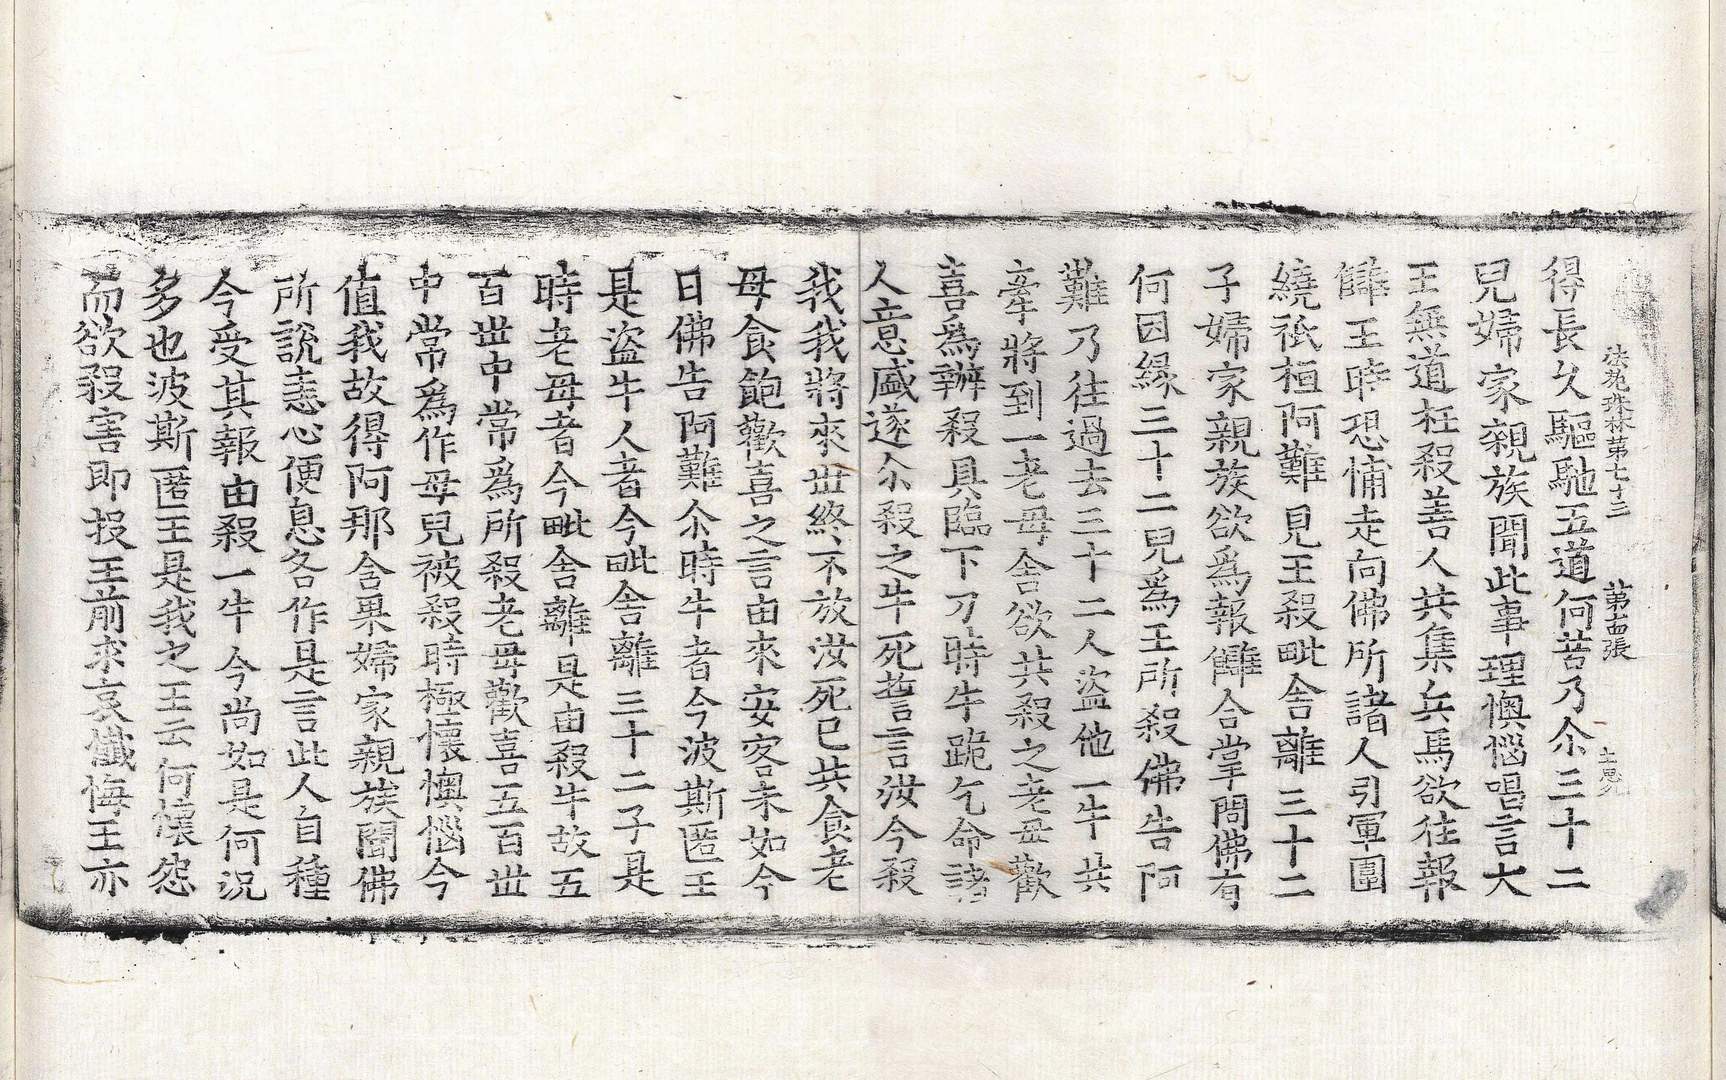 法苑珠林第七十三　第十四張　士思
得長久驅馳五道何苦乃尒三十二
兒婦家親族聞此事理懊惱唱言大
王無道枉殺善人共集兵馬欲往報
讎王時恐怖走向佛所諸人引軍圍
繞祇桓阿難見王殺毗舍離三十二
子婦家親族欲爲報讎合掌問佛有
何因緣三十二兒爲王所殺佛告阿
難乃往過去三十二人盜他一牛共
牽將到一老母舍欲共殺之老母歡
喜爲辦殺具臨下刀時牛跪乞命諸
人意盛遂尒殺之牛死誓言汝今殺
我我將來世終不放汝死已共食老
母食飽歡喜之言由來安客未如今
日佛告阿難尒時牛者今波斯匿王
是盜牛人者今毗舍離三十二子是
時老母者今毗舍離是由殺牛故五
百世中常爲所殺老母歡喜五百世
中常爲作母兒被殺時極懷懊惱今
值我故得阿那含果婦家親族聞佛
所說恚心便息各作是言此人自種
今受其報由殺一牛今尚如是何況
多也波斯匿王是我之王云何懷怨
而欲殺害即投王前求哀懺悔王亦